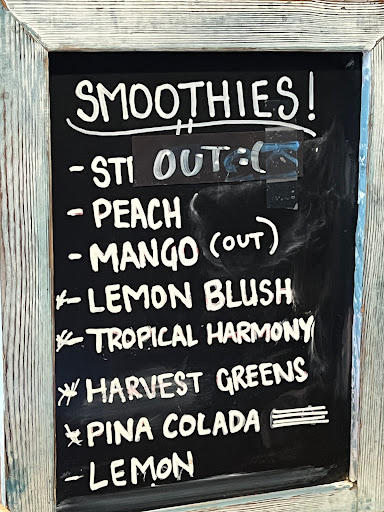 SMOOTHIES!
- ST OUT :(
- PEACH
- MANGO (OUT)
- LEMON BLUSH
- TROPICAL HARMONY
- HARVEST GREENS
- PINA COLADA
- LEMON